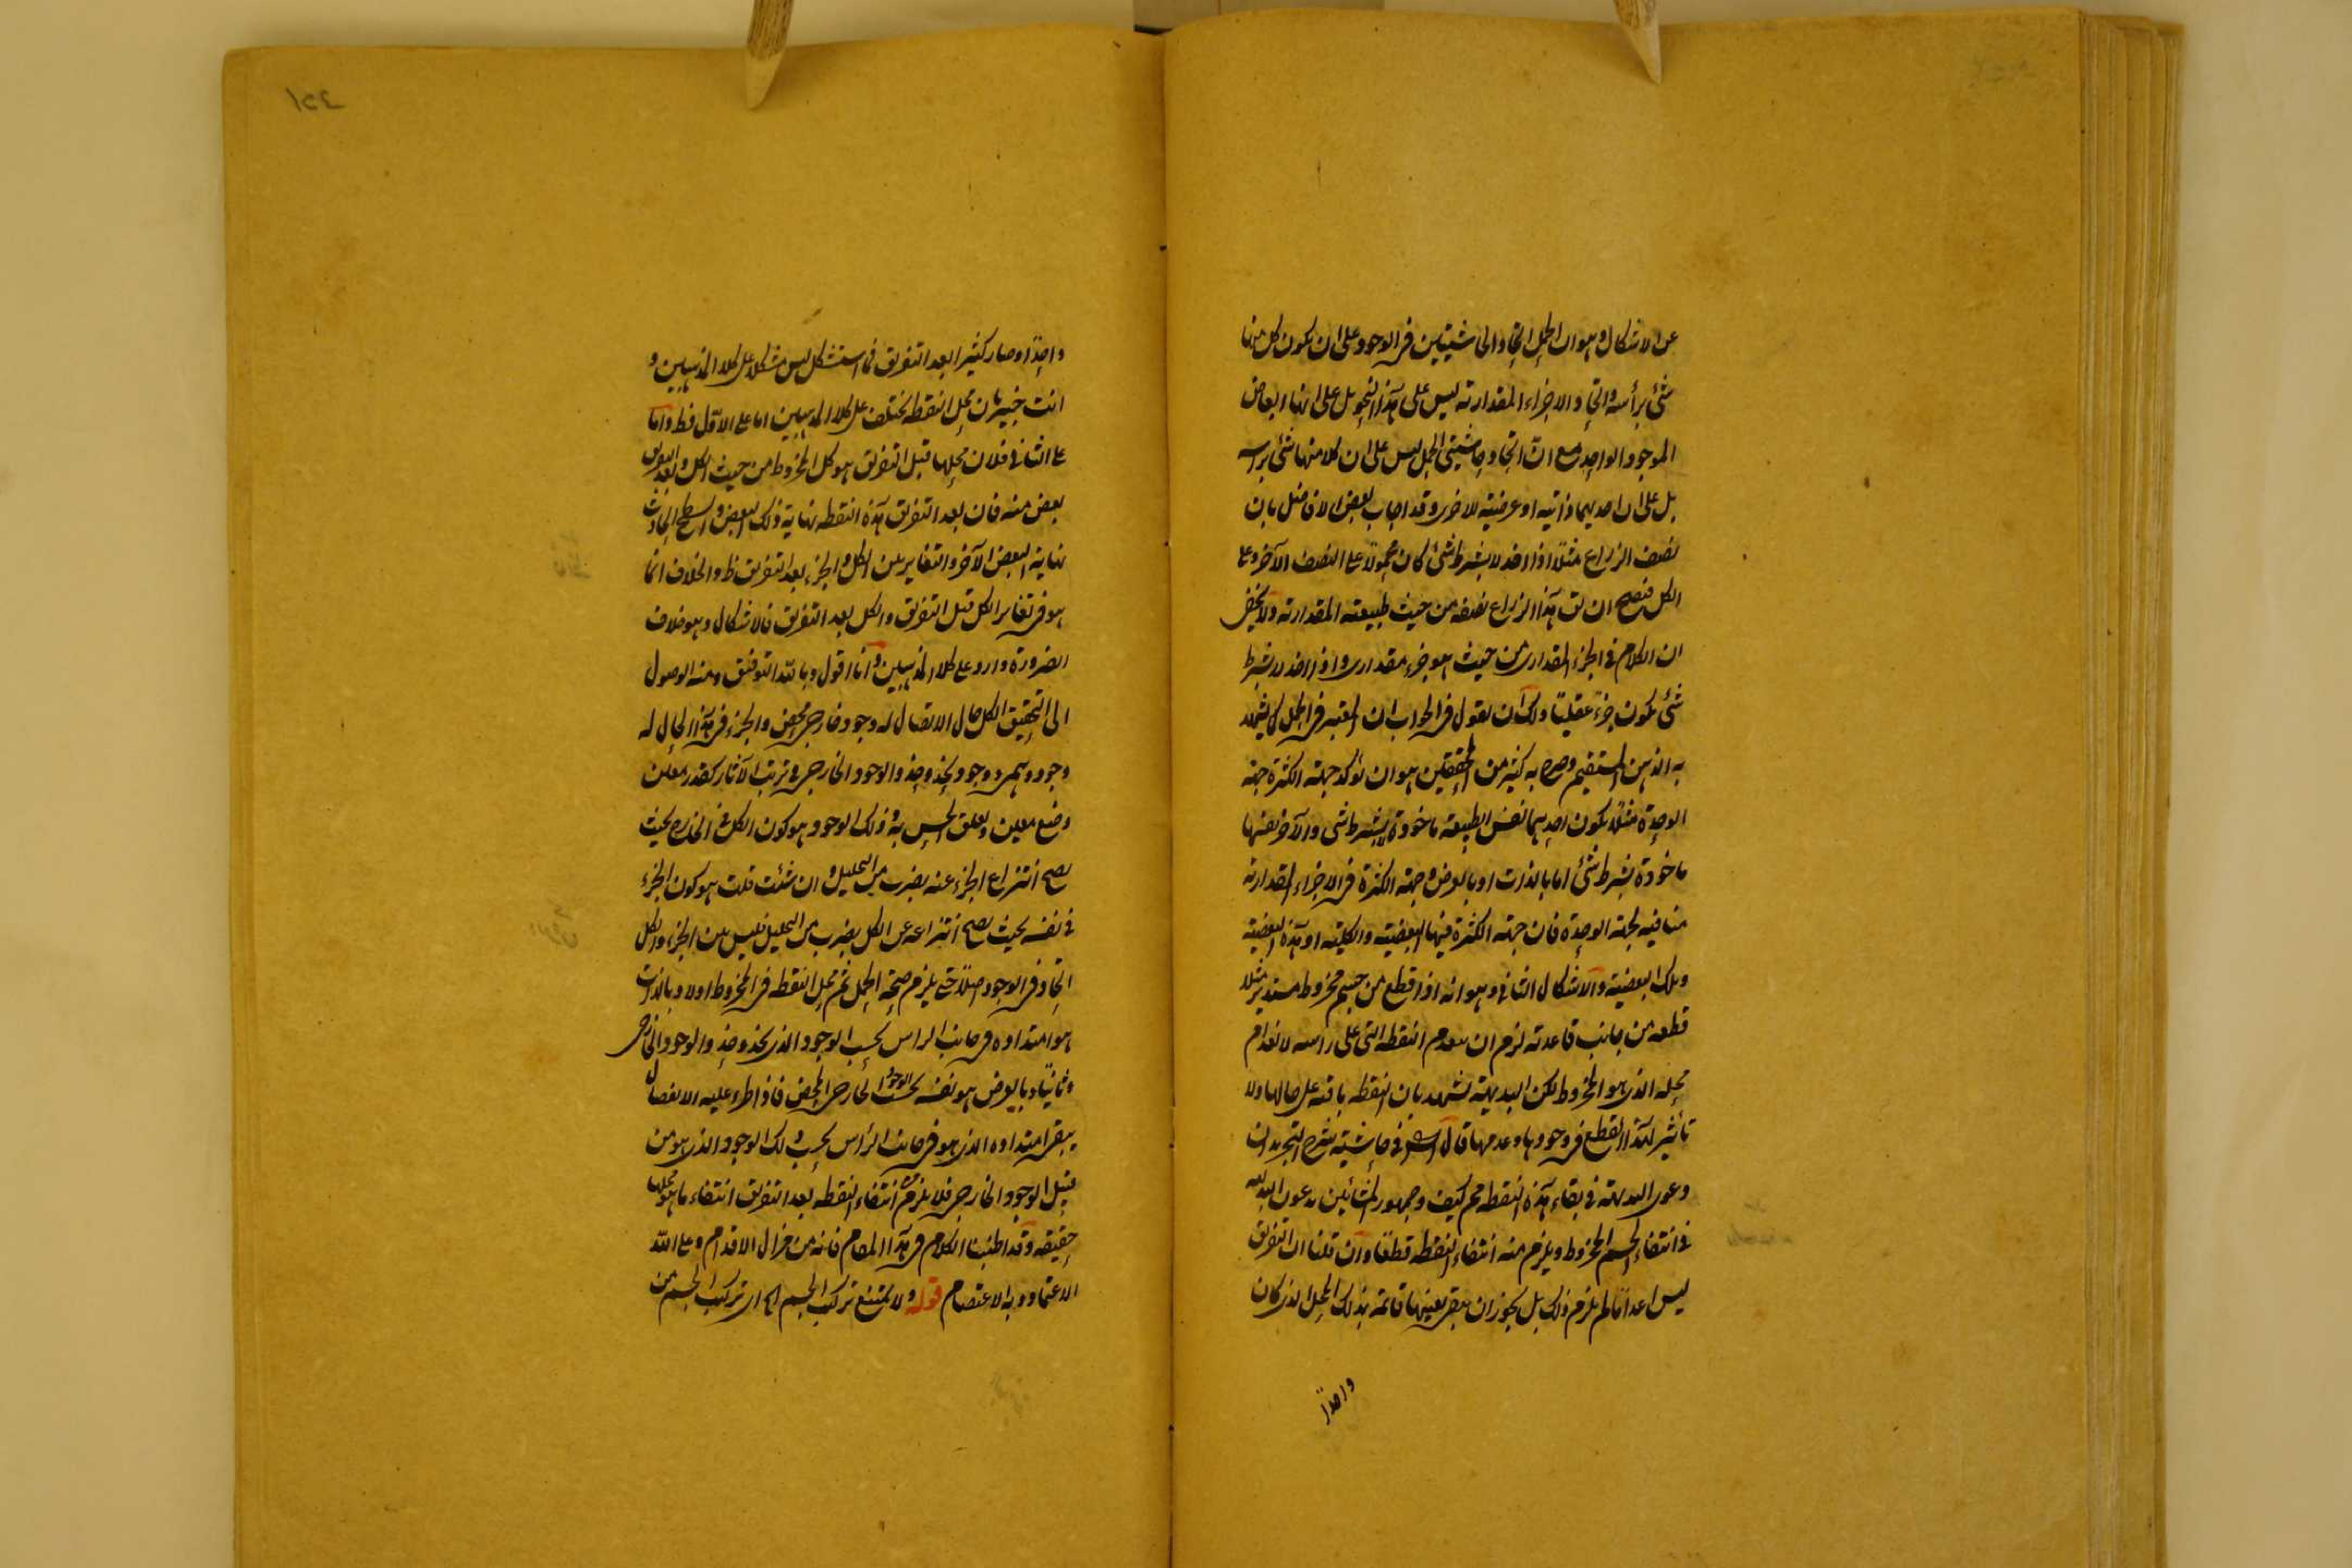 عن الاشكال وهو ان الحمل اتحاد الحاشيتين فى الوجود على ان يكون كل منها
شئ برأسه واتحاد الاجزاء المقدارية ليس على هذا النحو بل على انها ابعاض
الموجود الواحد مع ان اتحاد حاشيتى الحمل ليس على ان كلا منها شئ براسه
بل على ان احديهما ذاتية او عرضية للاخرى وقد اجاب بعض الافاضل بان
نصف الذراع مثلا اذا اخذ لا بشرط شئ كان محمولا على النصف الآخر وعلى
الكل فيصح ان يق هذا الذراع نصفه من حيث طبيعته المقدارية ولا يخفى
ان الكلام فى الجزء المقدارى من حيث هو جزء مقدارى واذا اخذ لا بشرط
شئ يكون جزءً عقليًا ولك ان تقول فى الجواب ان المعتبر فى الحمل كما يشهد
به الذهن المستقيم وصرح به كثير من المحققين هو ان تؤكد جهة الكثرة جهة
الوحدة مثلا يكون احديهما نفس الطبيعة ماخوذة لا بشرط شى والآخر نفسها
ماخوذة بشرط شئ اما بالذات او بالعرض وجهة الكثرة فى الاجزاء المقدارية
منافية لجهة الوحدة فان جهة الكثرة فيها البعضية والكلية او هذه البعضية
وتلك البعضية والاشكال الثانى وهو انه اذا قطع من جسم مخروط مستدير مثلا
قطعة من جانب قاعدته لزم ان ينعدم النقطة التى على راسه لانعدام
محله الذى هو المخروط لكن البديهية تشهد بان النقطة باقية على حالها ولا
تأثير لهذا القطع فى وجودها وعدمها قال السيد فى حاشية شرح التجريد ان
دعوى البديهة فى بقاء هذه النقطة مم كيف وجمهور المشائين يدعون البديهة
فى انتفاء الجسم المخروط ويلزم منه انتفاء النقطة قطعًا وان قلنا ان التفريق
ليس اعدامًا لم يلزم ذلك بل يجوز ان يبقى بعينها قائمة بذلك المحل الذى كان
واحدًا
١٥٤
واحدًا وصار كثيرا بعد التفريق فما استشكل ليس مشكلا على كلا المذهبين و
انت خبير بان محل النقطة يختلف على كلا المذهبين اما على الاول فظ واما
على الثانى فلان محلها قبل التفريق هو كل المخروط من حيث الكل وبعد التفريق
بعض منه فان بعد التفريق هذه النقطة نهاية ذلك البعض والسطح الحادث
نهاية البعض الآخر والتغاير بين الكل والجزء بعد التفريق ظ والخلاف انما
هو فى تغاير الكل قبل التفريق والكل بعد التفريق فالاشكال وهو خلاف
الضرورة وارد على كلا المذهبين وانا اقول وبالله التوفيق ومنه الوصول
الى التحقيق الكل حال الاتصال له وجود خارجى محض والجزء فى هذا الحال له
وجود وهمى ووجود يحذو حذو الوجود الخارجى فى ترتب الآثار كقدر معين
وضع معين وتعلق الحس به وذلك الوجود هو كون الكل فى الخارج بحيث
يصح انتزاع الجزء عنه بضرب من التحليل وان شئت قلت هو كون الجزء
فى نفسه بحيث يصح انتزاعه عن الكل بضرب من التحليل فليس بين الجزء والكل
اتحاد فى الوجود اصلا حتى يلزم صحة الحمل ثم محل النقطة فى المخروط اولا وبالذات
هو امتداده فى جانب الراس بحسب الوجود الذى يحذو حذو الوجود الخارجى
وثانيًا وبالعرض هو نفسه بحسب الوجود الخارجى المحض فاذا طرء عليه الانفصال
يبقى امتداده الذى هو فى جانب الرأس بحسب ذلك الوجود الذى هو من
قبيل الوجود الخارجى فلا يلزم من انتفاء النقطة بعد التفريق انتفاء ما هو محلها
حقيقة وقد اطنبنا الكلام فى هذا المقام فانه من مزال الاقدام وعلى الله
الاعتماد وبه الاعتصام قوله ولا يمتنع تركب الجسم اه اى تركب الجسم من